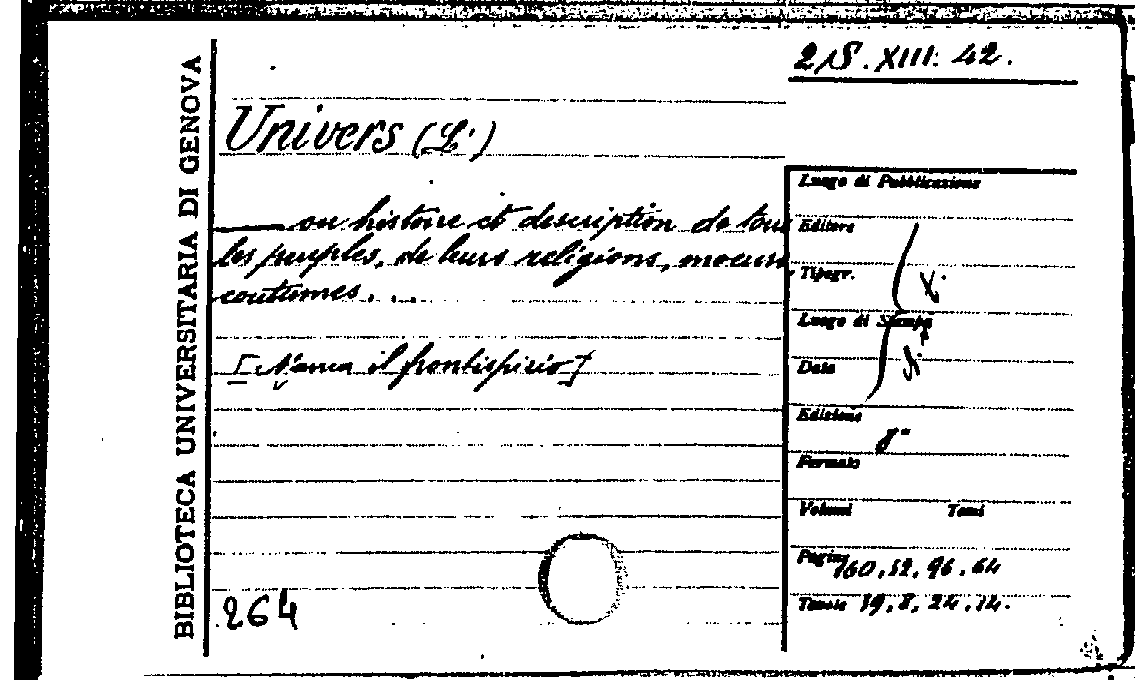 BIBLIOTECA UNIVERSITARIA DI GENOVA
2 S. XIII. 42.
Univers (L')
ou histoire et description de tous
les peuples, de leurs religions, moeurs,
coutumes...
[Manca il frontispizio]
264
Luogo di Pubblicazione
Editore
Tipogr.
Luogo di Stampa
Data
Edizione
8°
Formato
Volumi Tomi
Pagine 160, 32, 96, 64
Tavole 19, 8, 24, 14.